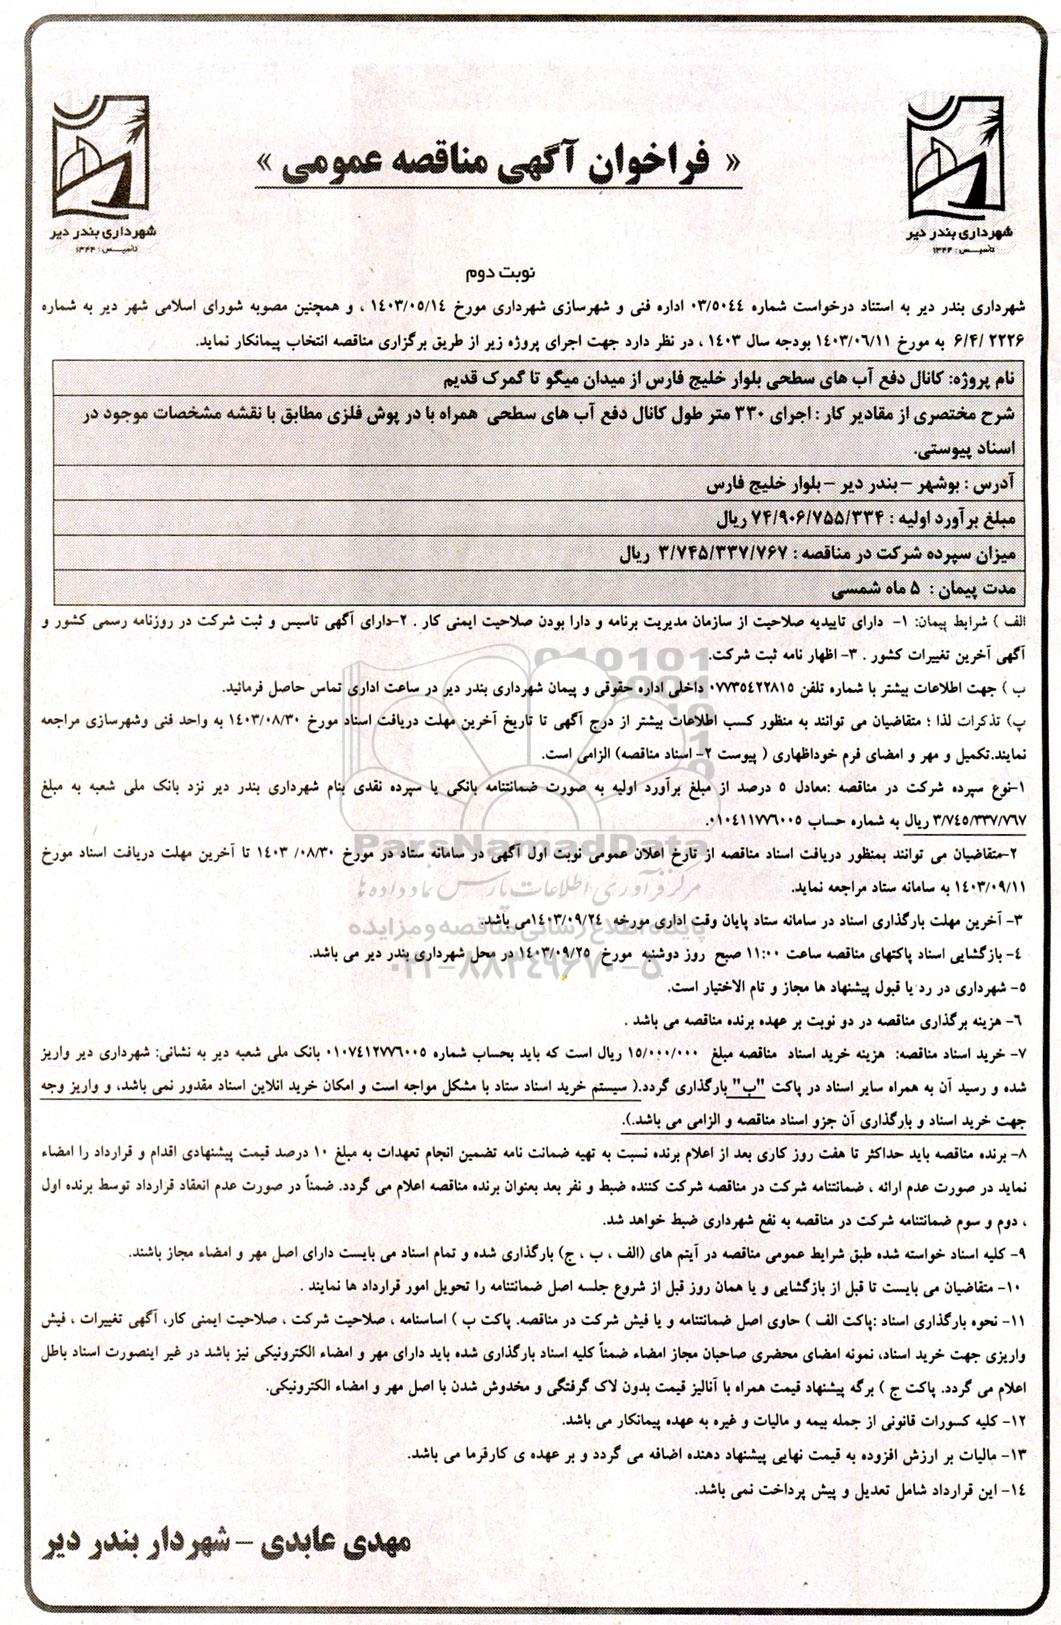 شهرداری بندر دیر
تأسیس : ۱۳۴۴
« فراخوان آگهی مناقصه عمومی »
شهرداری بندر دیر
تأسیس : ۱۳۴۴
نوبت دوم
شهرداری بندر دیر به استناد درخواست شماره ۰۳/۵۰۴۴ اداره فنی و شهرسازی شهرداری مورخ ۱۴۰۳/۰۵/۱۴ ، و همچنین مصوبه شورای اسلامی شهر دیر به شماره
۶/۴/ ۲۲۲۶ به مورخ ۱۴۰۳/۰۶/۱۱ بودجه سال ۱۴۰۳ ، در نظر دارد جهت اجرای پروژه زیر از طریق برگزاری مناقصه انتخاب پیمانکار نماید.
نام پروژه: کانال دفع آب های سطحی بلوار خلیج فارس از میدان میگو تا گمرک قدیم
شرح مختصری از مقادیر کار : اجرای ۳۳۰ متر طول کانال دفع آب های سطحی همراه با در پوش فلزی مطابق با نقشه مشخصات موجود در
اسناد پیوستی.
آدرس : بوشهر – بندر دیر – بلوار خلیج فارس
مبلغ برآورد اولیه : ۷۴/۹۰۶/۷۵۵/۳۳۴ ریال
میزان سپرده شرکت در مناقصه : ۳/۷۴۵/۳۳۷/۷۶۷ ریال
مدت پیمان : ۵ ماه شمسی
الف ) شرایط پیمان: ۱- دارای تاییدیه صلاحیت از سازمان مدیریت برنامه و دارا بودن صلاحیت ایمنی کار . ۲-دارای آگهی تاسیس و ثبت شرکت در روزنامه رسمی کشور و
آگهی آخرین تغییرات کشور . ۳- اظهار نامه ثبت شرکت.
ب ) جهت اطلاعات بیشتر با شماره تلفن ۰۷۷۳۵۴۲۲۸۱۵ داخلی اداره حقوقی و پیمان شهرداری بندر دیر در ساعت اداری تماس حاصل فرمائید.
پ) تذکرات لذا ؛ متقاضیان می توانند به منظور کسب اطلاعات بیشتر از درج آگهی تا تاریخ آخرین مهلت دریافت اسناد مورخ ۱۴۰۳/۰۸/۳۰ به واحد فنی وشهرسازی مراجعه
نمایند.تکمیل و مهر و امضای فرم خوداظهاری ( پیوست ۲- اسناد مناقصه) الزامی است.
۱-نوع سپرده شرکت در مناقصه :معادل ۵ درصد از مبلغ برآورد اولیه به صورت ضمانتنامه بانکی یا سپرده نقدی بنام شهرداری بندر دیر نزد بانک ملی شعبه به مبلغ
۳/۷۴۵/۳۳۷/۷۶۷ ریال به شماره حساب ۰۱۰۴۱۱۷۷۶۰۰۵.
۲-متقاضیان می توانند بمنظور دریافت اسناد مناقصه از تارخ اعلان عمومی نوبت اول آگهی در سامانه ستاد در مورخ ۰۸/۳۰/ ۱۴۰۳ تا آخرین مهلت دریافت اسناد مورخ
۱۴۰۳/۰۹/۱۱ به سامانه ستاد مراجعه نماید.
۳- آخرین مهلت بارگذاری اسناد در سامانه ستاد پایان وقت اداری مورخه ۱۴۰۳/۰۹/۲۴می باشد.
۴- بازگشایی اسناد پاکتهای مناقصه ساعت ۱۱:۰۰ صبح روز دوشنبه مورخ ۱۴۰۳/۰۹/۲۵ در محل شهرداری بندر دیر می باشد.
۵- شهرداری در رد یا قبول پیشنهاد ها مجاز و تام الاختیار است.
۶- هزینه برگذاری مناقصه در دو نوبت بر عهده برنده مناقصه می باشد .
۷- خرید اسناد مناقصه: هزینه خرید اسناد مناقصه مبلغ ۱۵/۰۰۰/۰۰۰ ریال است که باید بحساب شماره ۰۱۰۷۴۱۲۷۷۶۰۰۵ بانک ملی شعبه دیر به نشانی: شهرداری دیر واریز
شده و رسید آن به همراه سایر اسناد در پاکت "ب" بارگذاری گردد.( سیستم خرید اسناد ستاد با مشکل مواجه است و امکان خرید انلاین اسناد مقدور نمی باشد، و واریز وجه
جهت خرید اسناد و بارگذاری آن جزو اسناد مناقصه و الزامی می باشد.).
۸- برنده مناقصه باید حداکثر تا هفت روز کاری بعد از اعلام برنده نسبت به تهیه ضمانت نامه تضمین انجام تعهدات به مبلغ ۱۰ درصد قیمت پیشنهادی اقدام و قرارداد را امضاء
نماید در صورت عدم ارائه ، ضمانتنامه شرکت در مناقصه شرکت کننده ضبط و نفر بعد بعنوان برنده مناقصه اعلام می گردد. ضمناً در صورت عدم انعقاد قرارداد توسط برنده اول
، دوم و سوم ضمانتنامه شرکت در مناقصه به نفع شهرداری ضبط خواهد شد.
۹- کلیه اسناد خواسته شده طبق شرایط عمومی مناقصه در آیتم های (الف ، ب ، ج) بارگذاری شده و تمام اسناد می بایست دارای اصل مهر و امضاء مجاز باشند.
۱۰- متقاضیان می بایست تا قبل از بازگشایی و یا همان روز قبل از شروع جلسه اصل ضمانتنامه را تحویل امور قرارداد ها نمایند .
۱۱- نحوه بارگذاری اسناد :پاکت الف ) حاوی اصل ضمانتنامه و یا فیش شرکت در مناقصه. پاکت ب ) اساسنامه ، صلاحیت شرکت ، صلاحیت ایمنی کار، آگهی تغییرات ، فیش
واریزی جهت خرید اسناد، نمونه امضای محضری صاحبان مجاز امضاء ضمناً کلیه اسناد بارگذاری شده باید دارای مهر و امضاء الکترونیکی نیز باشد در غیر اینصورت اسناد باطل
اعلام می گردد. پاکت ج ) برگه پیشنهاد قیمت همراه با آنالیز قیمت بدون لاک گرفتگی و مخدوش شدن با اصل مهر و امضاء الکترونیکی.
۱۲- کلیه کسورات قانونی از جمله بیمه و مالیات و غیره به عهده پیمانکار می باشد.
۱۳- مالیات بر ارزش افزوده به قیمت نهایی پیشنهاد دهنده اضافه می گردد و بر عهده ی کارفرما می باشد.
۱۴- این قرارداد شامل تعدیل و پیش پرداخت نمی باشد.
مهدی عابدی – شهردار بندر دیر
ParsNamadData
مرکز فرآوری اطلاعات پارس نماد داده ها
پایگاه اطلاع رسانی مناقصه و مزایده
۰۲۱-۸۸۳۴۹۶۷۰-۵